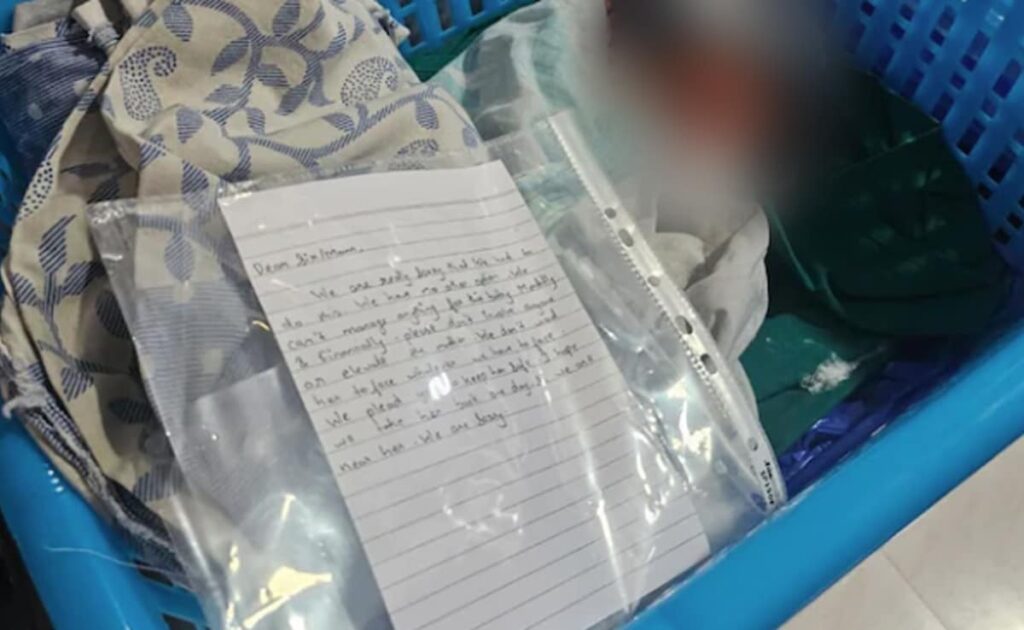 Dear Sir/Mam,
We are really sorry that We had to
do this. We have no other option. We
can't manage anything for this baby. Mentally
& financially. please don't involve anyone
or elevate the matter. We don't
her to face we have to face.
We plead you keep her safe. I hope
we take her back one day &
near her. We are sorry